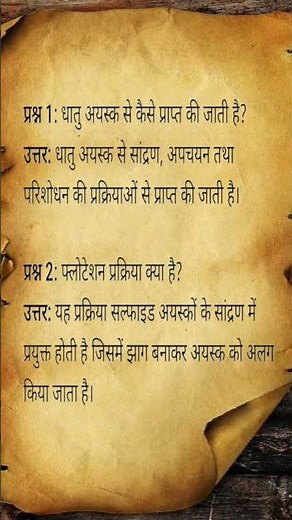 प्रश्न 1: धातु अयस्क से कैसे प्राप्त की जाती है?
उत्तर: धातु अयस्क से सांद्रण, अपचयन तथा
परिशोधन की प्रक्रियाओं से प्राप्त की जाती है।
प्रश्न 2: फ्लोटेशन प्रक्रिया क्या है?
उत्तर: यह प्रक्रिया सल्फाइड अयस्कों के सांद्रण में
प्रयुक्त होती है जिसमें झाग बनाकर अयस्क को अलग
किया जाता है।